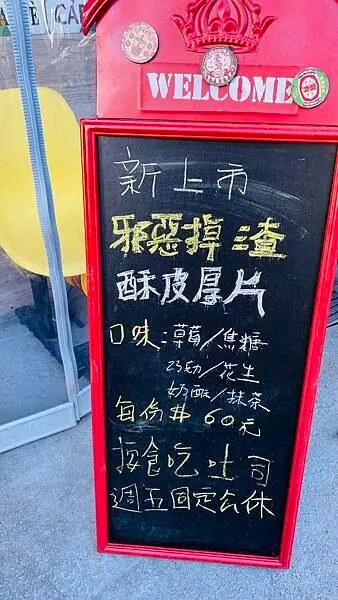 WELCOME
新上市
邪惡掉渣
酥皮厚片
口味:草莓/焦糖
巧克力/花生
奶酥/抹茶
每份# 60元
按食吃吐司
週五固定公休